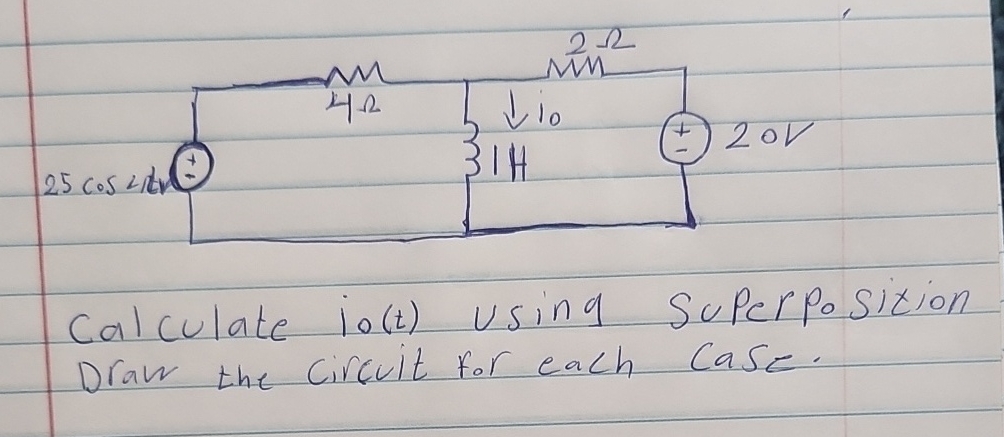 2Ω
4Ω
↓ io
+
-
+
-
20V
1H
25 cos
Calculate io(t) using SuperPosition
Draw the Circuit for each Case.